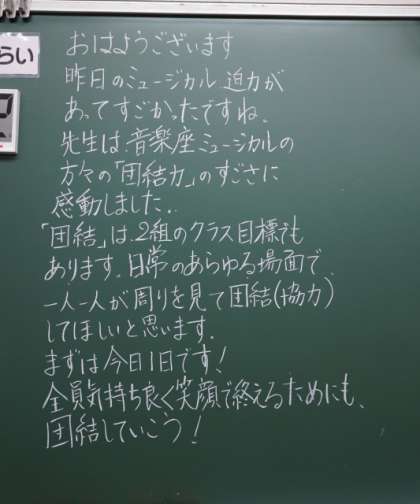 らい
おはようございます
昨日のミュージカル 迫力が
あってすごかったですね。
先生は、音楽座ミュージカルの
方々の「団結力」のすごさに
感動しました。
「団結」は、2組のクラス目標でも
あります。日常のあらゆる場面で、
一人一人が周りを見て団結(協力)
してほしいと思います。
まずは今日1日です!
全員気持ち良く笑顔で終えるためにも、
団結していこう!